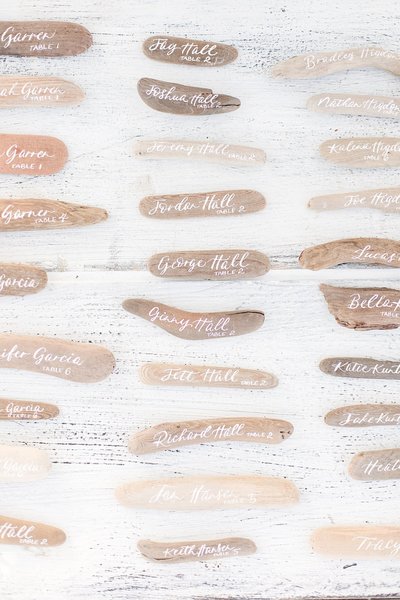 Garren
TABLE 1
ah Garren
TABLE 1
Garren
TABLE 1
Garner
Garcia
ifer Garcia
TABLE 6
Garcia
TABLE 6
Garcia
Hall
TABLE 2
Jay Hall
TABLE 2
Joshua Hall
TABLE 2
Jeremy Hall
TABLE 2
Jordan Hall
TABLE 2
George Hall
TABLE 2
Ginny Hall
TABLE 2
Jett Hall
TABLE 2
Richard Hall
TABLE 2
Jan Hansen
TABLE 5
Keith Hansen
TABLE 5
Bradley Higdon
Nathan Higdon
Kalena Higdon
Joe Higd
Lucas
Bella
TABLE
Katie Kun
TABLE
Jake Kun
TABLE
Heat
Tracy